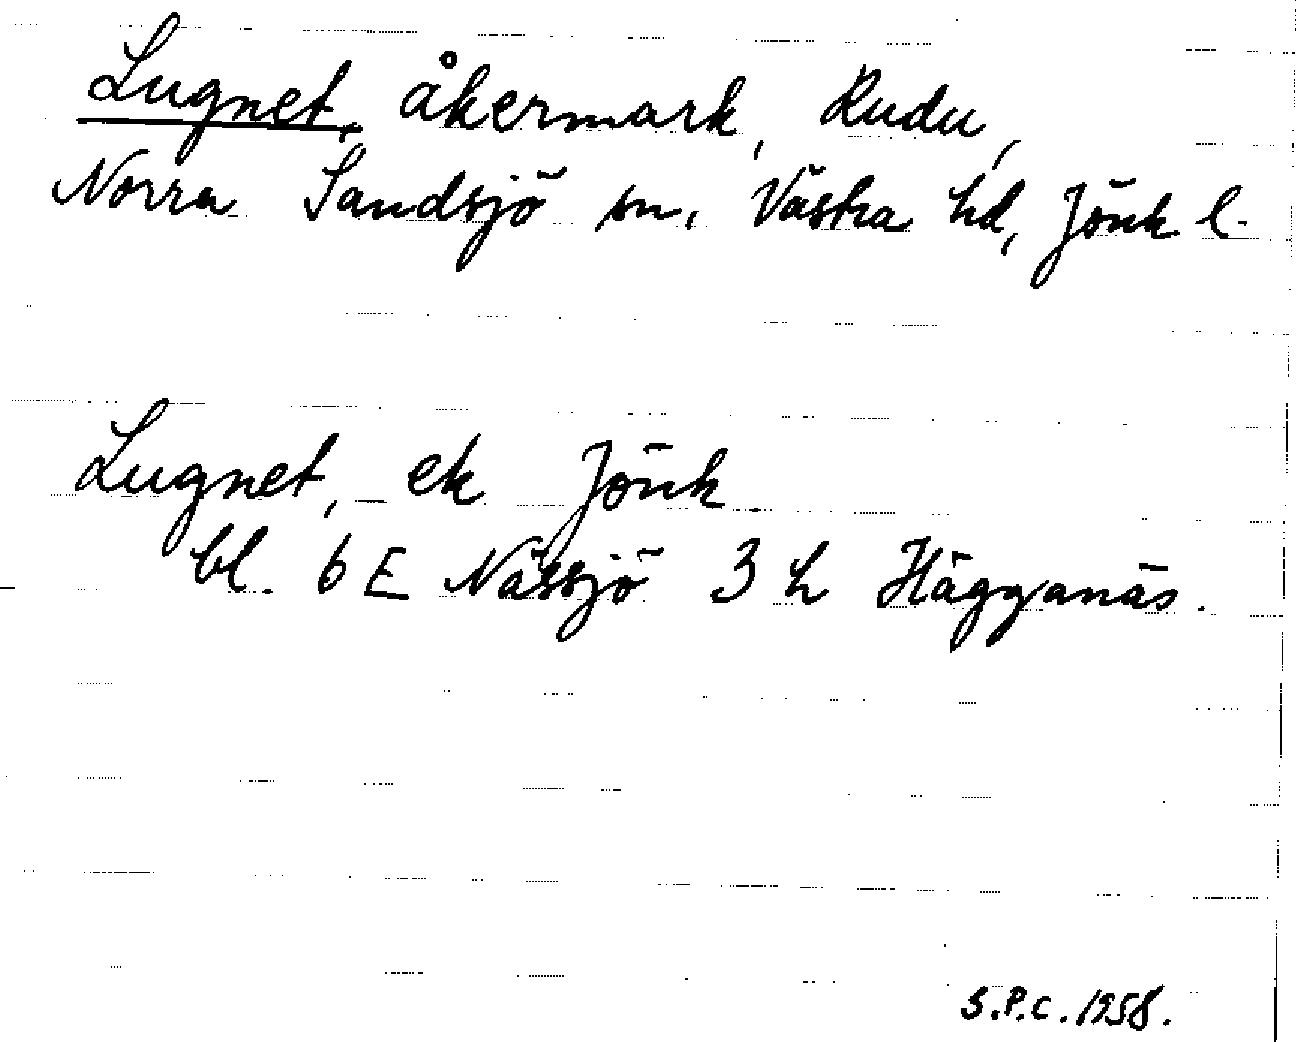 Lugnet, åkermark, Rudu,
Norra Sandsjö sn, Västra hd, Jönk l.
Lugnet, ek Jönk
bl. 6 E Nässjö 3 h Hägganäs.
S.P.C. 1958.